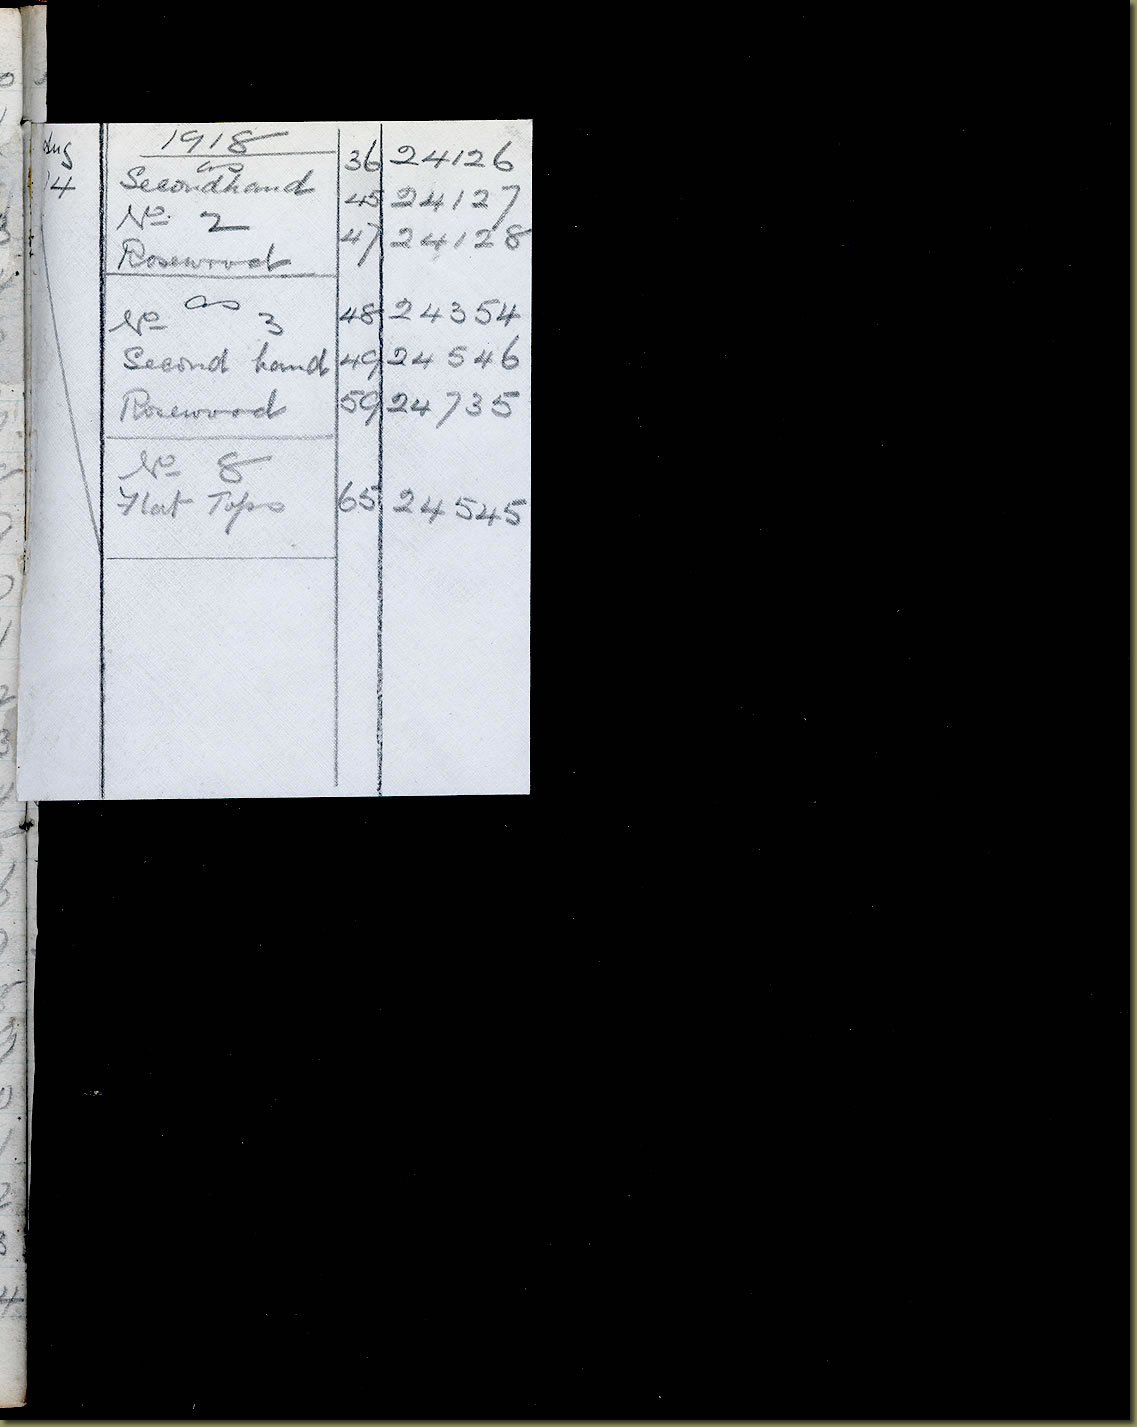 Aug
14
1918
36 24126
as
Secondhand
45 24127
No. 2
47 24128
Rosewood
as
No 3 48 24354
Second hand 49 24546
Rosewood 59 24735
No 8
Flat Tops 65 24545